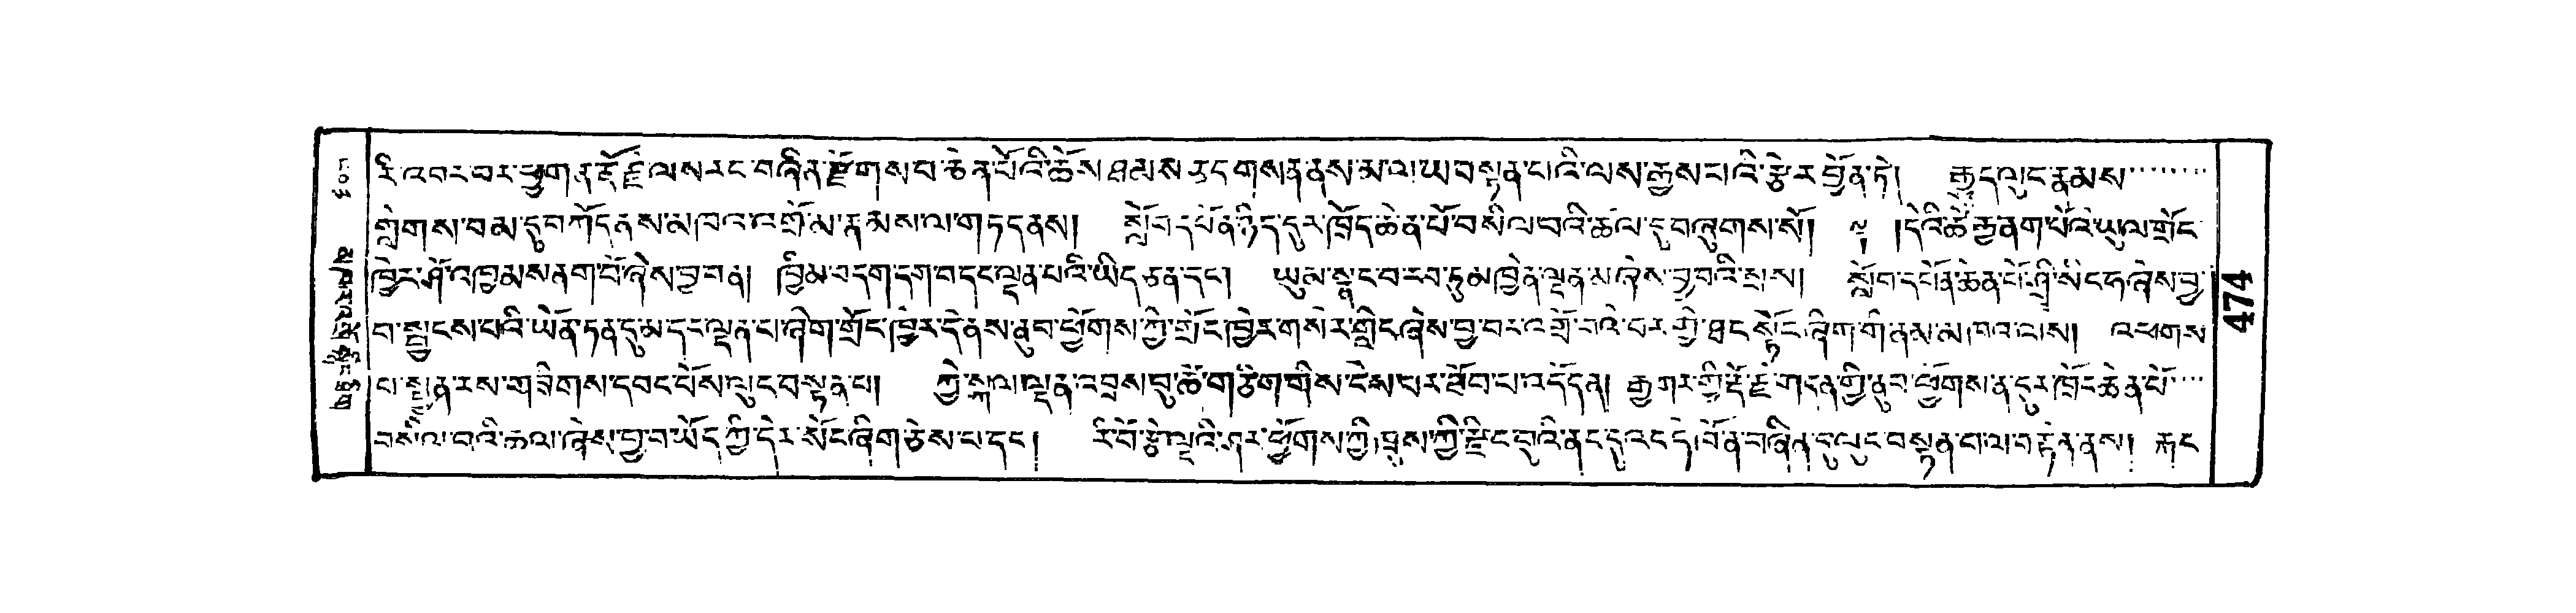 རི་འབར་བར་ཕྱག་ན་རྡོ་རྗེ་ལས་རང་བཞིན་རྫོགས་པ་ཆེན་པོའི་ཆོས་ཐམས་ཅད་གསན་ནས་མ་ལ་ཡ་བསྟན་པའི་ལས་རྒྱས་པའི་རྩེར་བྱོན་ཏེ། རྒྱུད་ལུང་རྣམས
གླེགས་བམ་དུ་བཀོད་ནས་མཁའ་འགྲོ་མ་རྣམས་ལ་གཏད་ནས། སློབ་དཔོན་ཉིད་དུར་ཁྲོད་ཆེན་པོ་བསིལ་བའི་ཚལ་དུ་བཞུགས་སོ། ། །དེའི་ཚེ་རྒྱ་ནག་པོའི་ཡུལ་གྲོང་
ཁྱེར་ཤོ་འཁྱམ་ས་ནག་པོ་ཞེས་བྱ་བན། ཁྱིམ་བདག་དག་བ་དང་ལྡན་པའི་ཡིད་ཅན་དང་། ཡུམ་སྣང་བ་རབ་ཏུ་མཁྱེན་ལྡན་མ་ཞེས་བྱ་བའི་སྲས། སློབ་དཔོན་ཆེན་པོ་ཤྲཱི་སིང་ཧ་ཞེས་བྱ་
བ་སྦྱངས་པའི་ཡོན་ཏན་དུ་མ་དང་ལྡན་པ་ཞིག་གྲོང་ཁྱེར་དེ་ནས་ནུབ་ཕྱོགས་ཀྱི་གྲོང་ཁྱེར་གསེར་གླིང་ཞེས་བྱ་བར་འགྲོ་བའི་བར་གྱི་ཐང་སྟོང་ཞིག་ག་ནམ་མཁའ་ལས། འཕགས
པ་སྤྱན་རས་གཟིགས་དབང་པོས་ལུང་བསྟན་པ། ཀྱེ་སྐལ་ལྡན་འབྲས་བུ་ཚེ་གཅིག་གིས་ངེས་པར་ཐོབ་པ་འདོད་ན། རྒྱ་གར་གྱི་རྡོ་རྗེ་གདན་གྱི་ནུབ་ཕྱོགས་ན་དུར་ཁྲོད་ཆེན་པོ
བསིལ་བའི་ཚལ་ཞེས་བྱ་བ་ཡོད་ཀྱི་དེར་སོང་ཞིག་ཅེས་པ་དང་། རི་བོ་རྩེ་ལྔའི་ཤར་ཕྱོགས་ཀྱི་ཕྲུས་ཀྱི་རྫིང་བུའི་ནང་དུ་འང་དེ་བོན་བཞིན་དུ་ལུང་བསྟན་པ་ལ་བརྟེན་ནས། རྐང
474